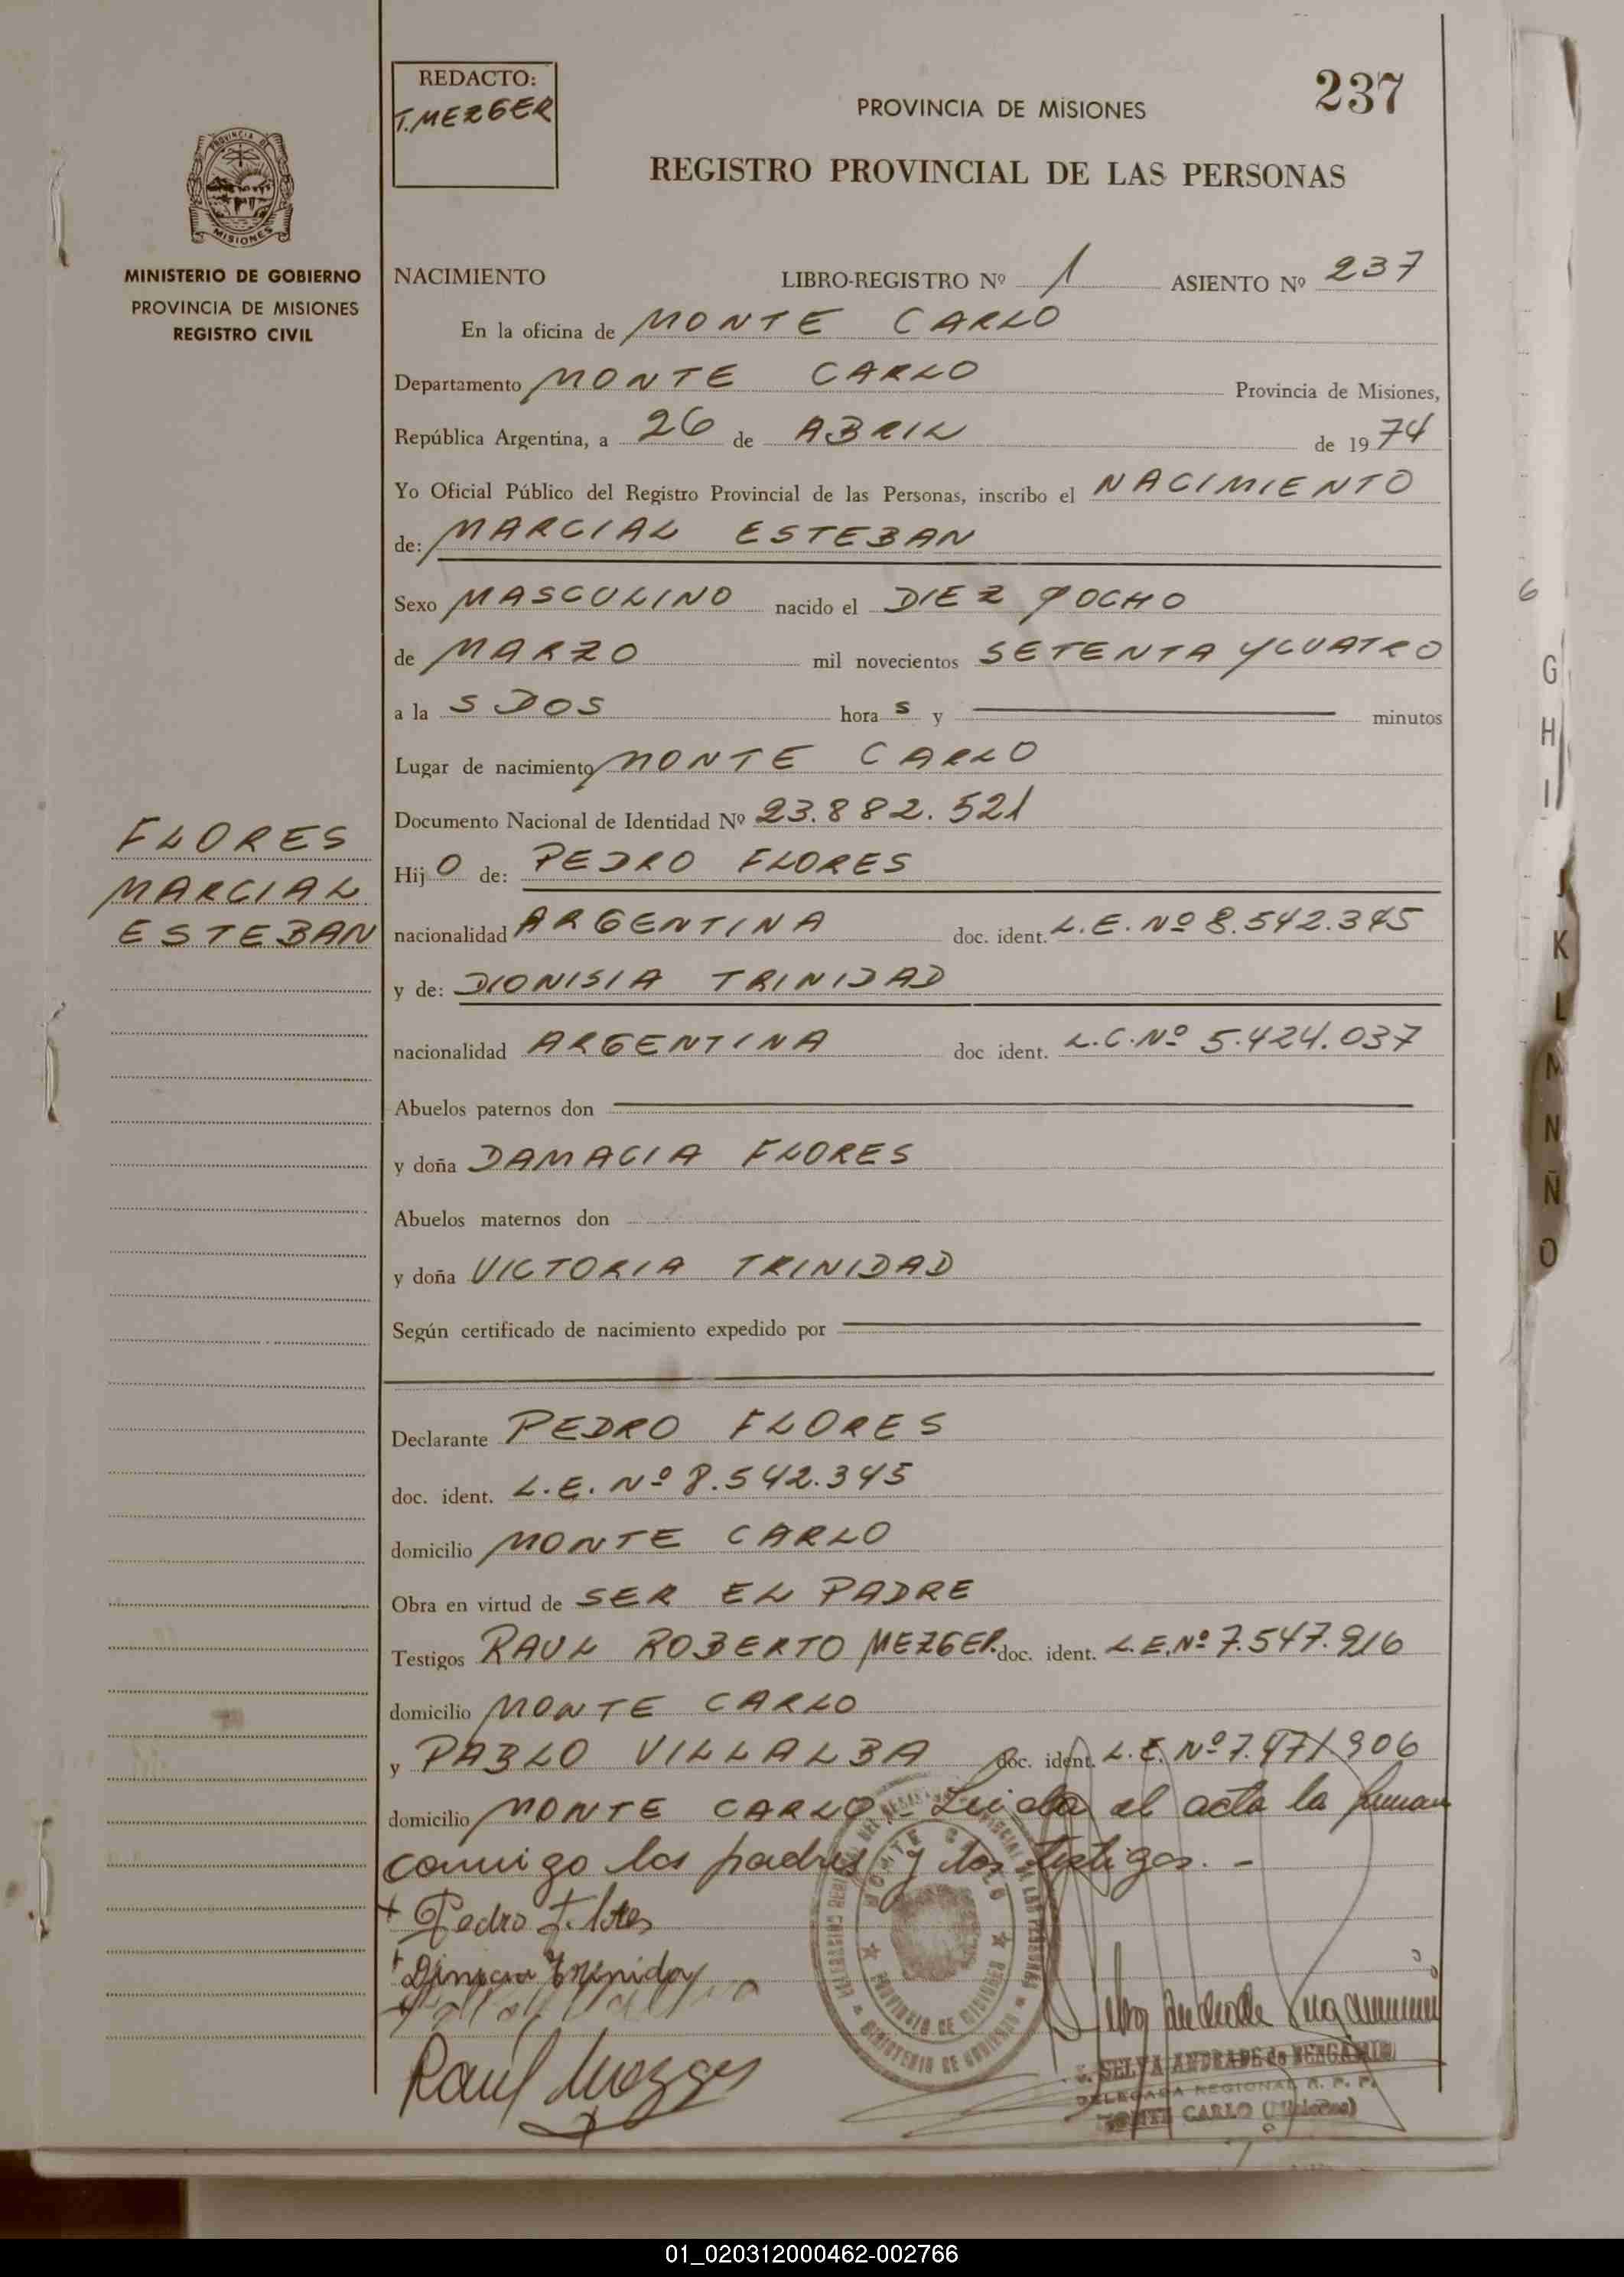 REDACTO:
T. MEZGER
PROVINCIA DE MISIONES
237
REGISTRO PROVINCIAL DE LAS PERSONAS
PROVINCIA DE
MISIONES
MINISTERIO DE GOBIERNO
PROVINCIA DE MISIONES
REGISTRO CIVIL
NACIMIENTO LIBRO-REGISTRO Nº 1 ASIENTO Nº 237
En la oficina de MONTE CARLO
Departamento MONTE CARLO Provincia de Misiones,
República Argentina, a 26 de ABRIL de 1974
Yo Oficial Público del Registro Provincial de las Personas, inscribo el NACIMIENTO
de: MARCIAL ESTEBAN
Sexo MASCULINO nacido el DIEZ Y OCHO
de MARZO mil novecientos SETENTA Y CUATRO
a la S DOS hora s y minutos
Lugar de nacimiento MONTE CARLO
Documento Nacional de Identidad Nº 23.882.521
FLORES
MARCIAL
ESTEBAN
Hij O de: PEDRO FLORES
nacionalidad ARGENTINA doc. ident. L.E. Nº 8.542.345
y de: DIONISIA TRINIDAD
nacionalidad ARGENTINA doc ident. L.C. Nº 5.424.037
Abuelos paternos don
y doña DAMACIA FLORES
Abuelos maternos don
y doña VICTORIA TRINIDAD
Según certificado de nacimiento expedido por
Declarante PEDRO FLORES
doc. ident. L.E. Nº 8.542.345
domicilio MONTE CARLO
Obra en virtud de SER EL PADRE
Testigos RAUL ROBERTO MEZGER. doc. ident. L.E. Nº 7.547.916
domicilio MONTE CARLO
y PABLO VILLALBA doc. ident. L.E. Nº 7.471906
domicilio MONTE CARLO - Leida el acta la firman
conmigo los padres y los testigos. -
Pedro Flores
Raúl Mezger
MONTE CARLO
PROVINCIA DE MISIONES
MINISTERIO DE GOBIERNO
SELVA ANDRADE de BERGAMIN
DELEGADA REGIONAL R. P. P.
MONTE CARLO (Misiones)
6
G
H
I
J
K
L
M
N
Ñ
O
01_020312000462-002766